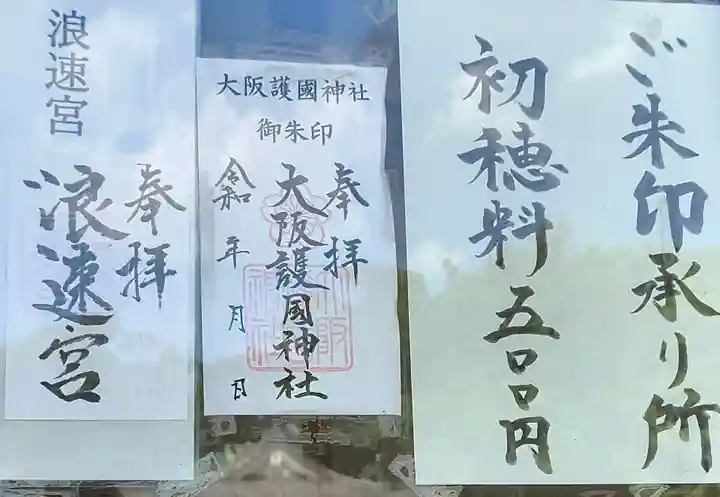 ご朱印承り所
初穂料五〇〇円
大阪護國神社
御朱印
奉拝
大阪護國神社
令和 年 月 日
浪速宮
奉拝
浪速宮